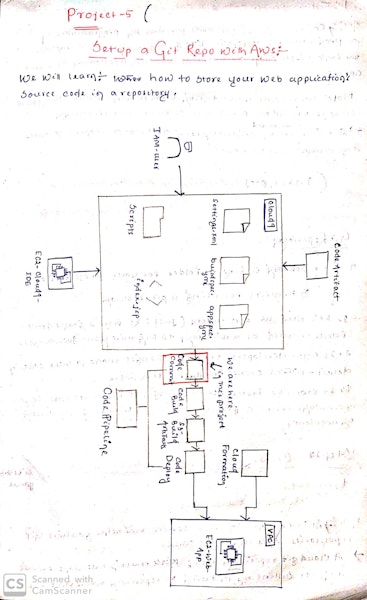 Project-5 (
Setup a Git Repo with Aws:-
We will learn:- how to store your web application's
source code in a repository.
IAM-User
Cloud9
Settings.xml
buildspec.yml
appspec.yml
Scripts
index.jsp
EC2-Cloud9-
IDE
Code Artifact
We are here
in this project
Code-
Commit
Code
Build
S3-
Build
Artifacts
Code
Deploy
Code Pipeline
Cloud
Formation
VPC
EC2-Web-
App
CS Scanned with
CamScanner